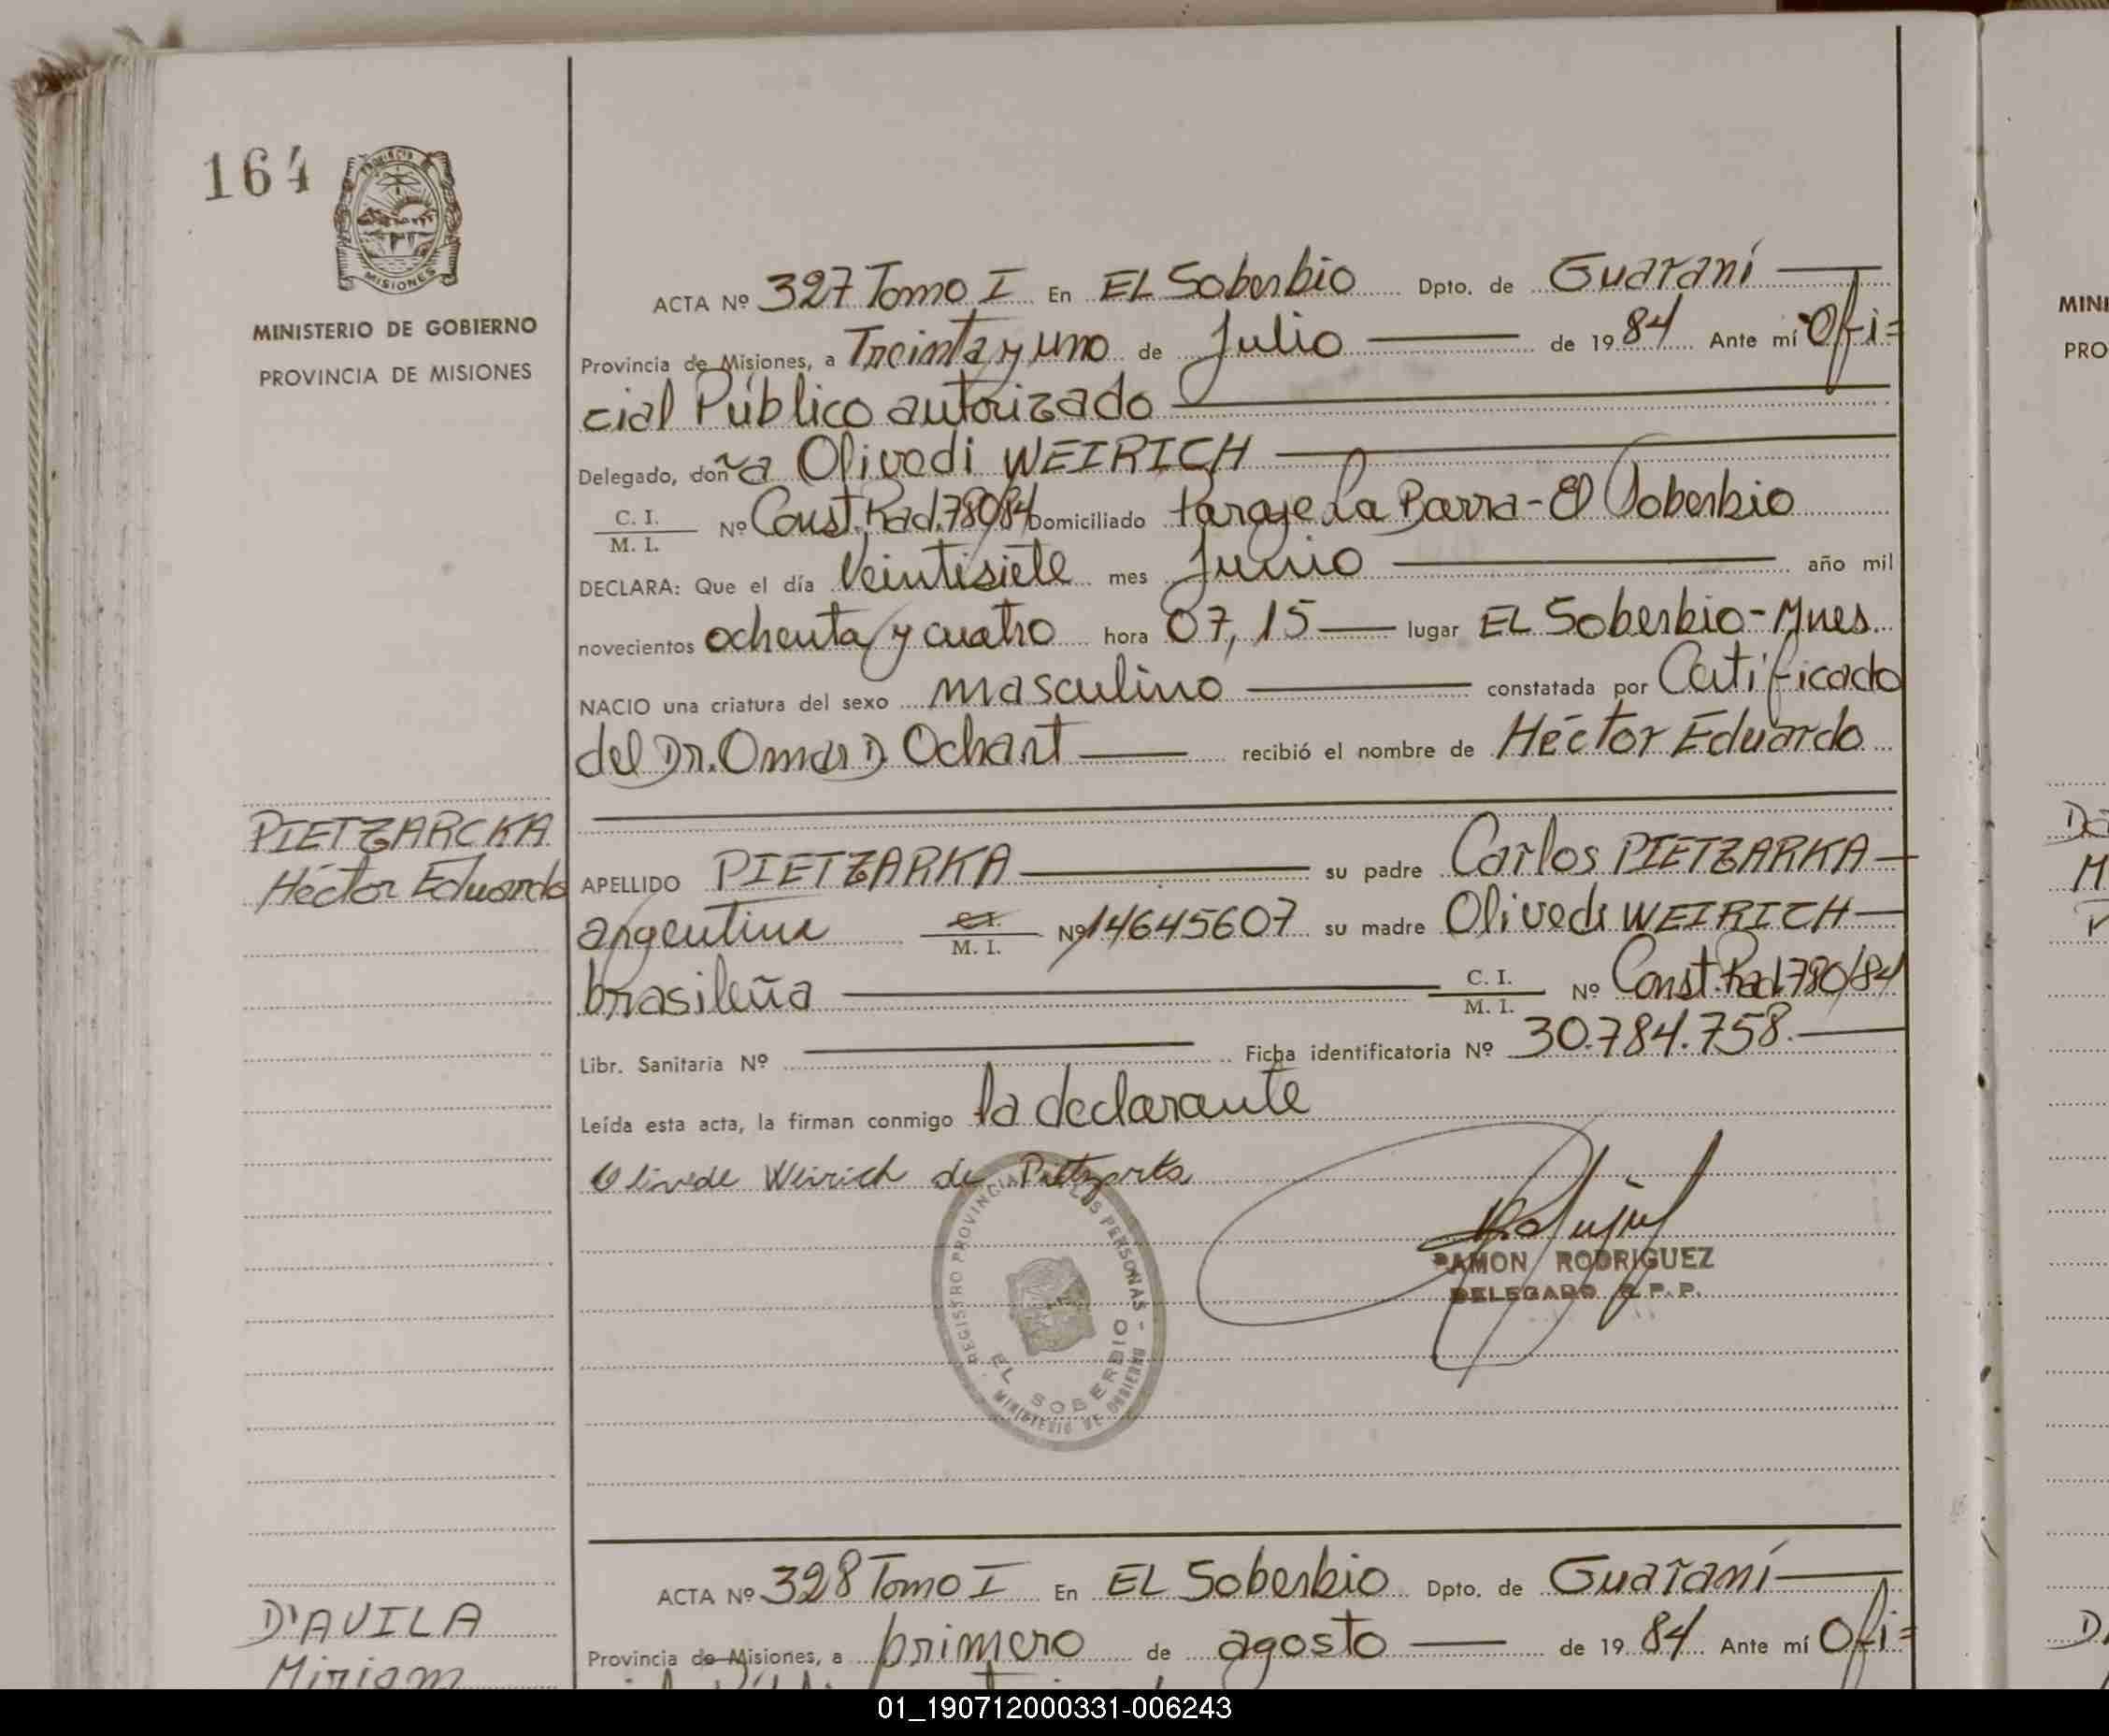 164
PROVINCIA DE
MISIONES
MINISTERIO DE GOBIERNO
PROVINCIA DE MISIONES
ACTA Nº 327 Tomo I En EL Soberbio Dpto. de Guaraní
Provincia de Misiones, a Treinta y uno de Julio de 1984 Ante mí Ofi=
cial Público autorizado
Delegado, doña Olivedi WEIRICH
C. I.
M. I. Nº Const. Rad. 780/84 Domiciliado Paraje La Barra-El Soberbio
DECLARA: Que el día Veintisiete mes Junio año mil
novecientos ochenta y cuatro hora 07,15 lugar EL Soberbio-Mnes.
NACIO una criatura del sexo masculino constatada por Certificado
del Dr. Omar D. Ochart recibió el nombre de Héctor Eduardo
PIETZARCKA
Héctor Eduardo
APELLIDO PIETZARKA su padre Carlos PIETZARKA
argentina C.I. M. I. Nº 14645607 su madre Olivedi WEIRICH
brasileña C. I. M. I. Nº Const. Rad. 780/84
Libr. Sanitaria Nº Ficha identificatoria Nº 30.784.758.
Leída esta acta, la firman conmigo la declarante
Olivede Weirich de Pietzarka
RAMON RODRIGUEZ
DELEGADO R. P. P.
REGISTRO PROVINCIAL DE LAS PERSONAS -
EL SOBERBIO
MINISTERIO DE GOBIERNO
ACTA Nº 328 Tomo I En EL Soberbio Dpto. de Guaraní
D'AVILA
Provincia de Misiones, a primero de agosto de 1984 Ante mí Ofi=
Miriam
MINI
PRO
01_190712000331-006243